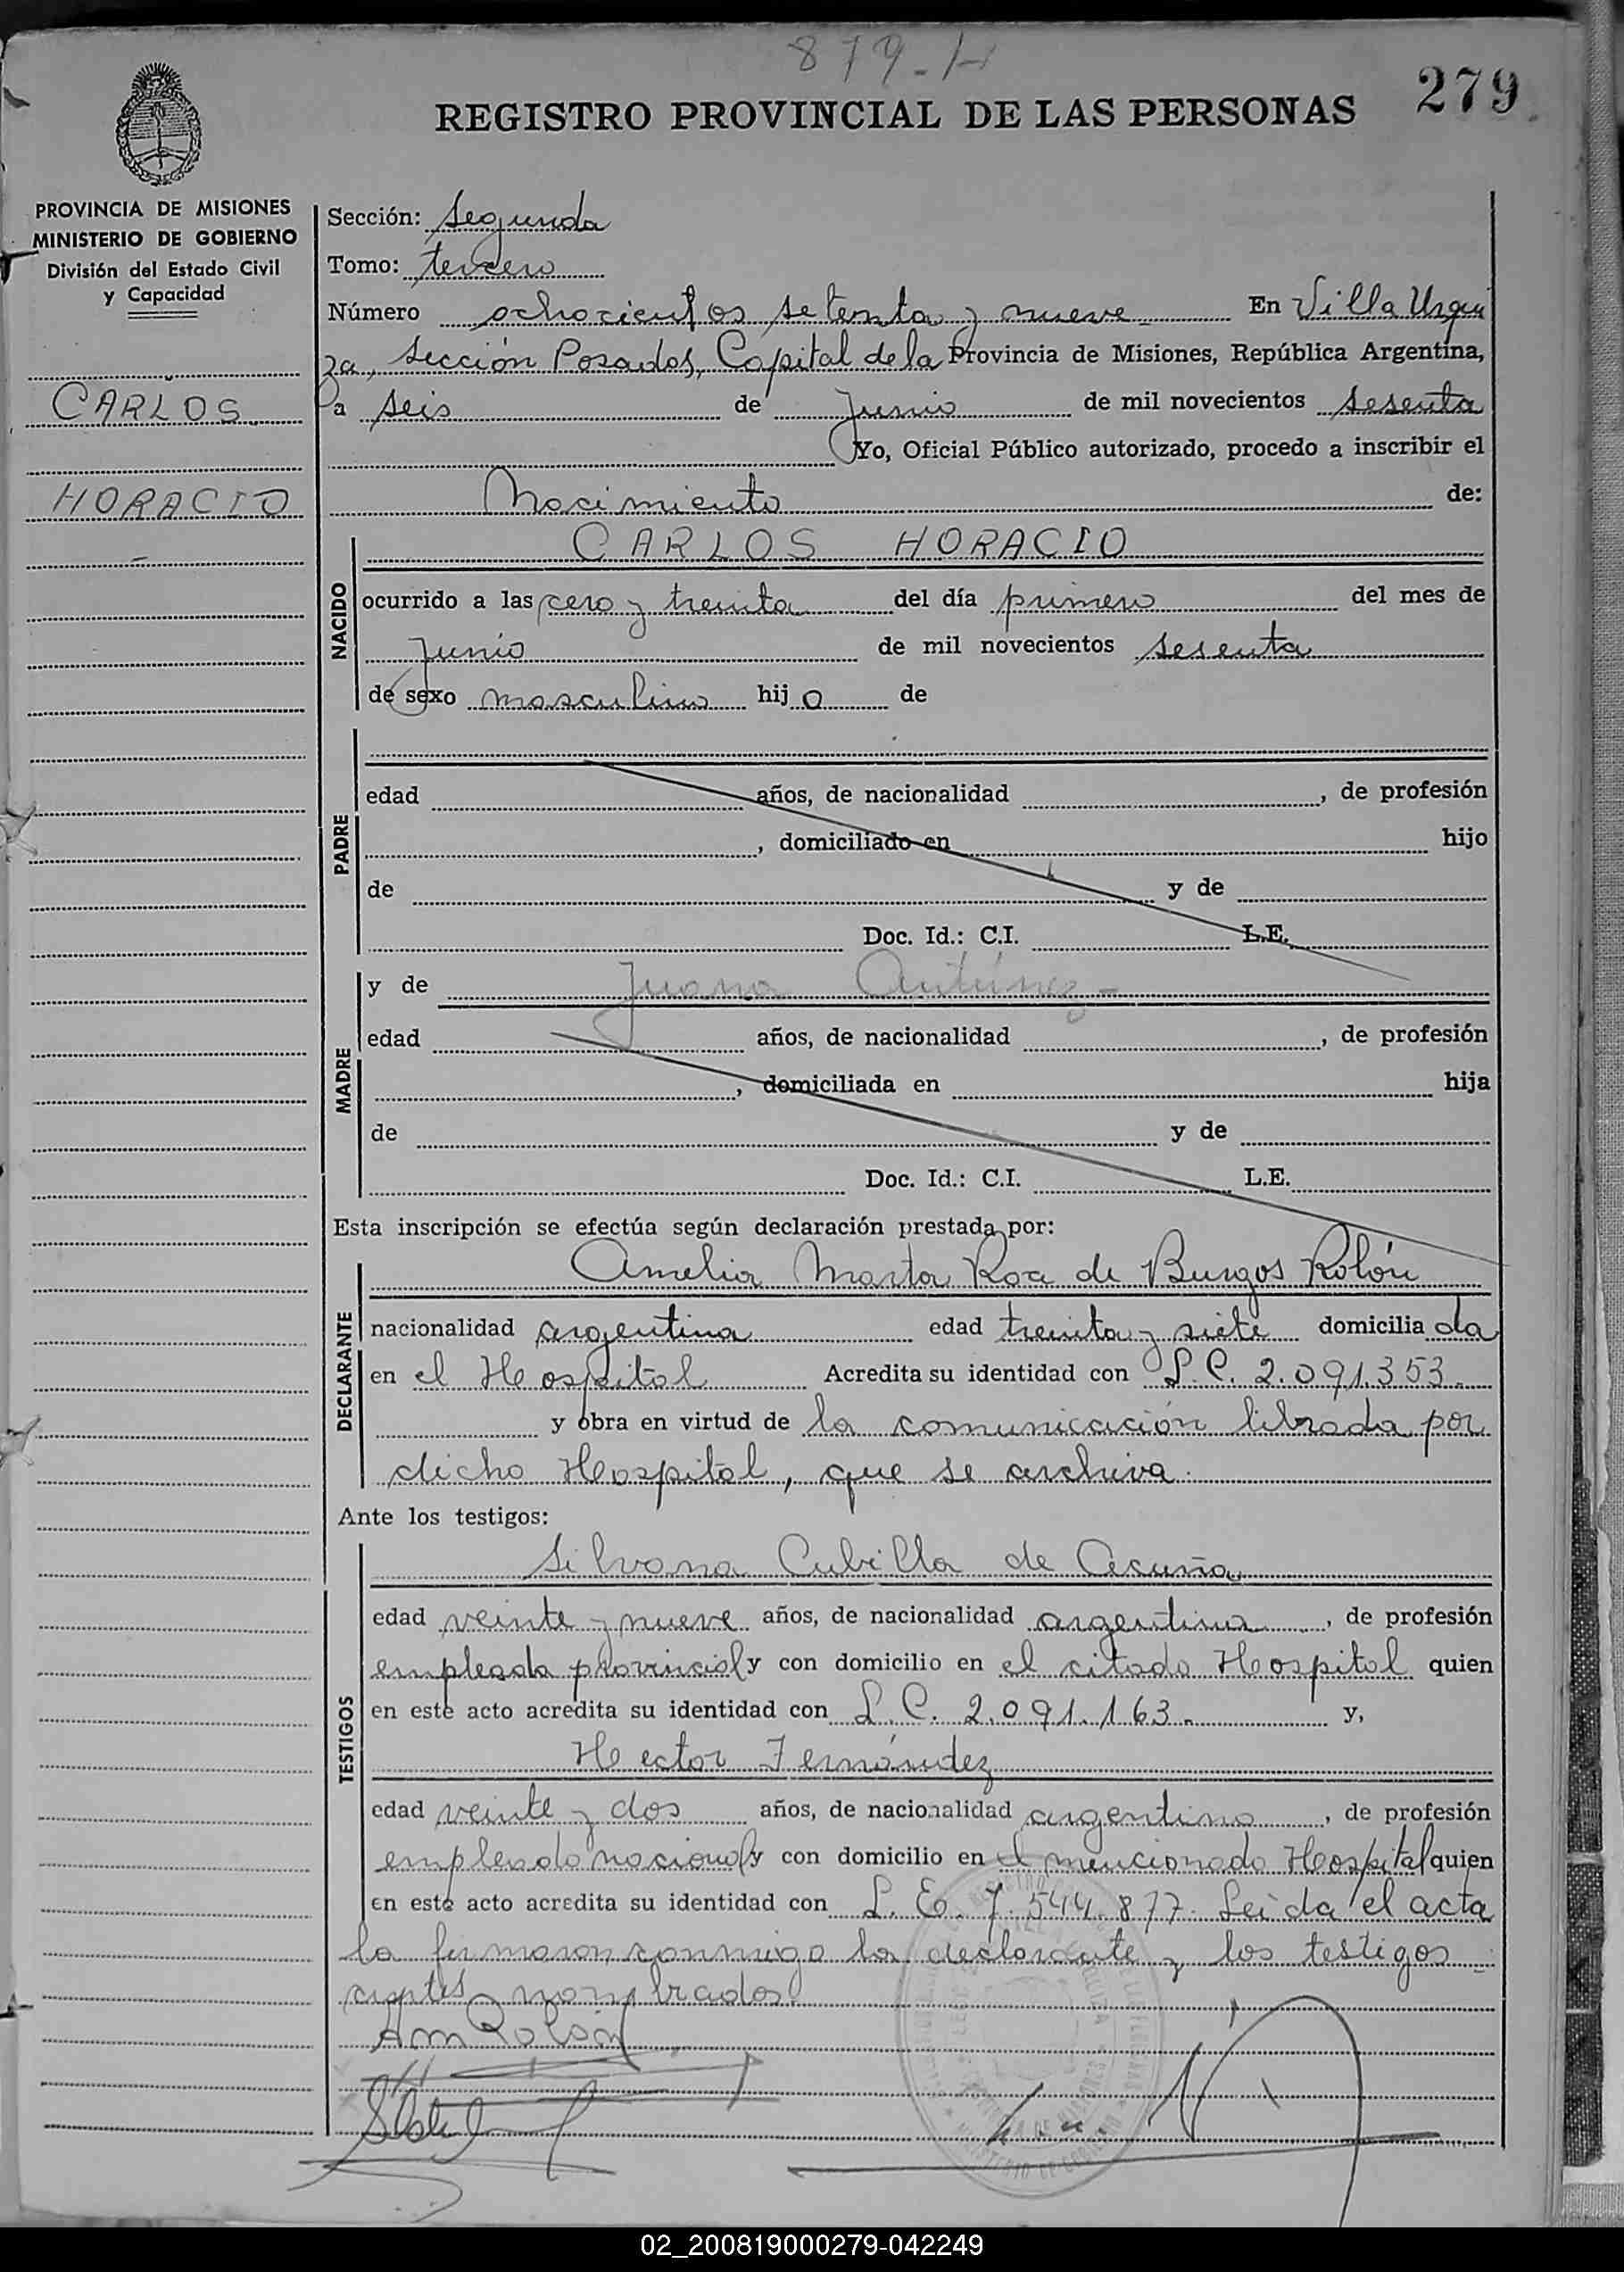 879-H
REGISTRO PROVINCIAL DE LAS PERSONAS
279
PROVINCIA DE MISIONES
MINISTERIO DE GOBIERNO
División del Estado Civil
y Capacidad
CARLOS
HORACIO
Sección: Segunda
Tomo: tercero
Número ochocientos setenta y nueve En Villa Urqui
za, Sección Posadas, Capital de la Provincia de Misiones, República Argentina,
a seis de Junio de mil novecientos sesenta
Yo, Oficial Público autorizado, procedo a inscribir el
Nacimiento de:
NACIDO
CARLOS HORACIO
ocurrido a las cero y treinta del día primero del mes de
Junio de mil novecientos sesenta
de sexo masculino hijo de
PADRE
edad años, de nacionalidad , de profesión
, domiciliado en hijo
de y de
Doc. Id.: C.I. L.E.
MADRE
y de Juana Antúnez -
edad años, de nacionalidad , de profesión
, domiciliada en hija
de y de
Doc. Id.: C.I. L.E.
Esta inscripción se efectúa según declaración prestada por:
DECLARANTE
Amelia Marta Roa de Burgos Rolón
nacionalidad argentina edad treinta y siete domiciliada
en el Hospital Acredita su identidad con L.C. 2.091.353
y obra en virtud de la comunicación librada por
dicho Hospital, que se archiva.
Ante los testigos:
TESTIGOS
Silvana Cubilla de Acuña
edad veinte y nueve años, de nacionalidad argentina, de profesión
empleada provincial y con domicilio en el citado Hospital quien
en este acto acredita su identidad con L.C. 2.091.163.- y,
Hector Fernández
edad veinte y dos años, de nacionalidad argentino, de profesión
empleado nacional y con domicilio en el mencionado Hospital quien
en este acto acredita su identidad con L.E. 7.544.877. Leida el acta
la firmaron conmigo la declarante y los testigos
antes nombrados.
Am Rolón
02_200819000279-042249